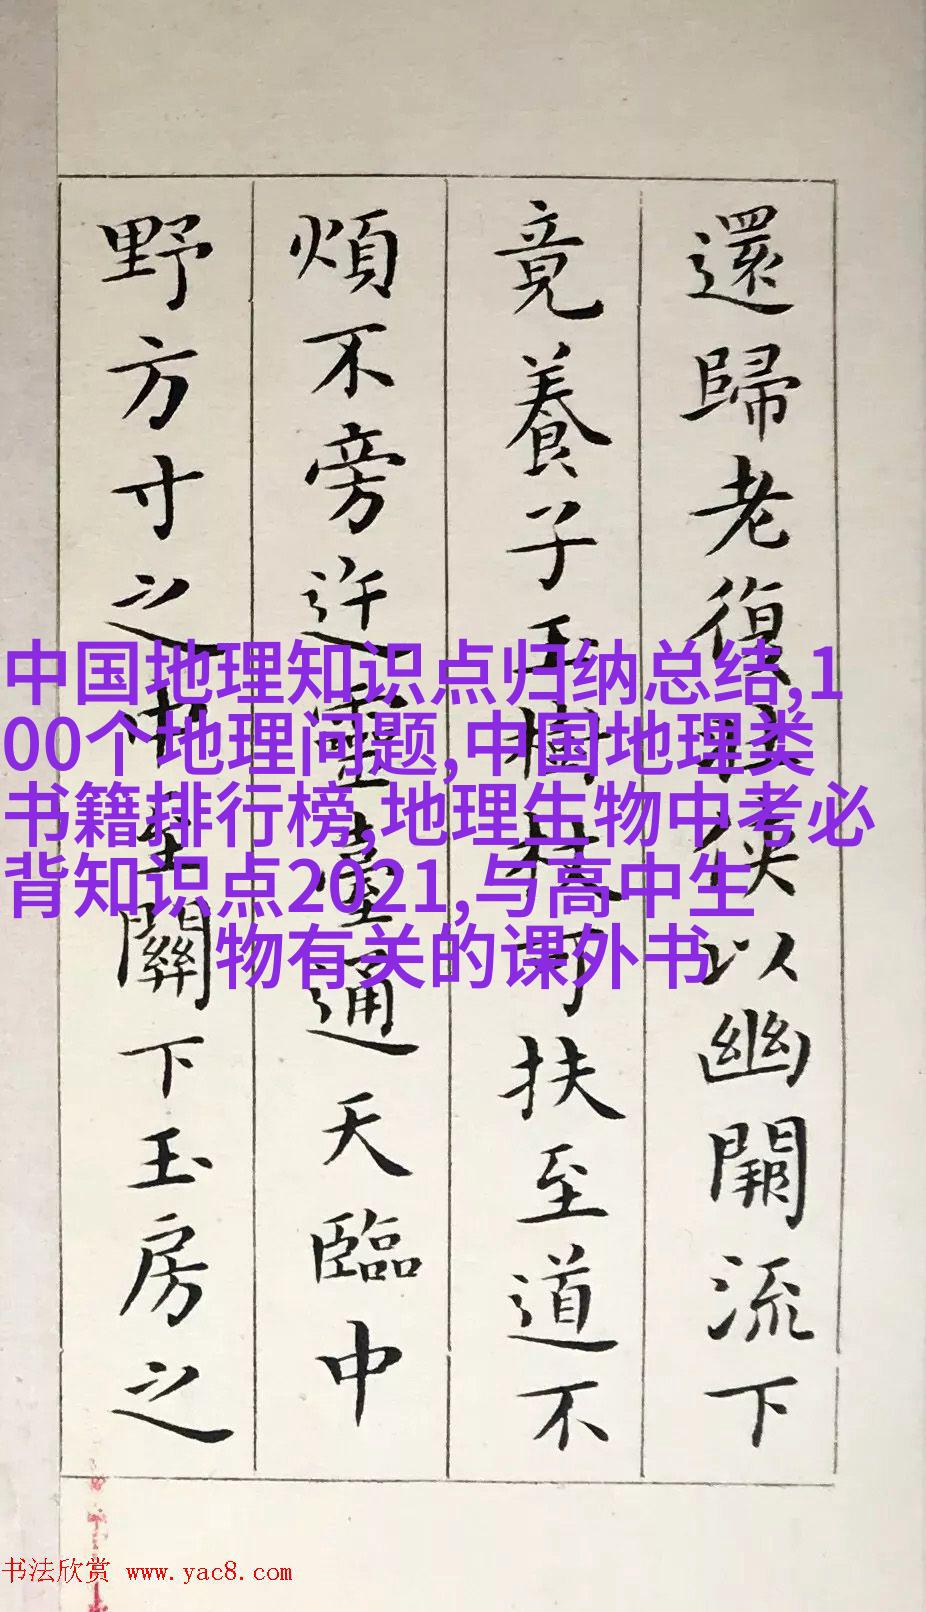 還歸老復俠以幽闕流下
竟養子玉樹杖可扶至道不
煩不旁迕靈臺通天臨中
野方寸之中至關下玉房之
中国地理知识点归纳总结,1
00个地理问题,中国地理类
书籍排行榜,地理生物中考必
背知识点2021,与高中生
物有关的课外书
书法欣赏 www.yac8.com